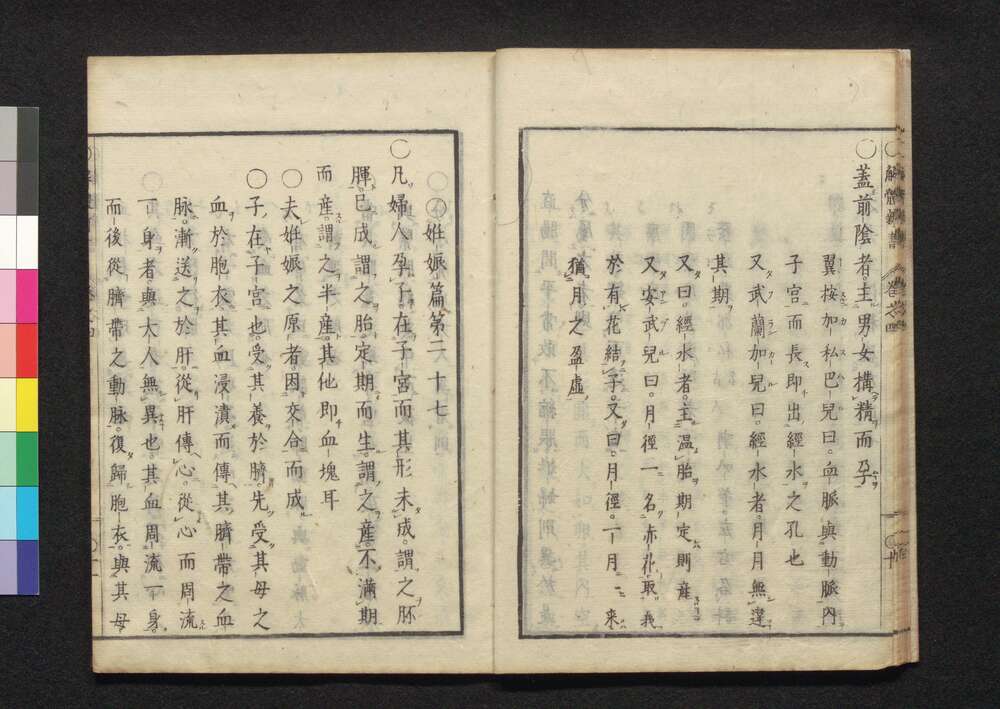 解體新書 卷之四
○蓋前陰者。主男女構精而孕
翼按加私巴兒曰。血脈與動脈。內
子宮而長。即出經水之孔也
又武蘭加兒曰。經水者。月月無違
其期。
又曰。經水者。主溫胎。期定則產
又安武兒曰。月徑一名赤花。取義
於有花結子。又曰。月徑。一月一來
猶月之盈虛。
○姙娠篇第二十七
○凡婦人孕。子在子宮。而其形未成。謂之胚
腪。已成。謂之胎。定期而生。謂之產。不滿期
而產。謂之半產。其他即血塊耳
○夫姙娠之原者。因交合而成
○子在子宮也。受其養於臍。先受其母之
血於胞衣。其血浸漬而傳其臍帶之血
脉。漸送之於肝。從肝傳心。從心而周流
一身者。與大人無異也。其血周流一身。
而後從臍帶之動脉。復歸胞衣。與其母